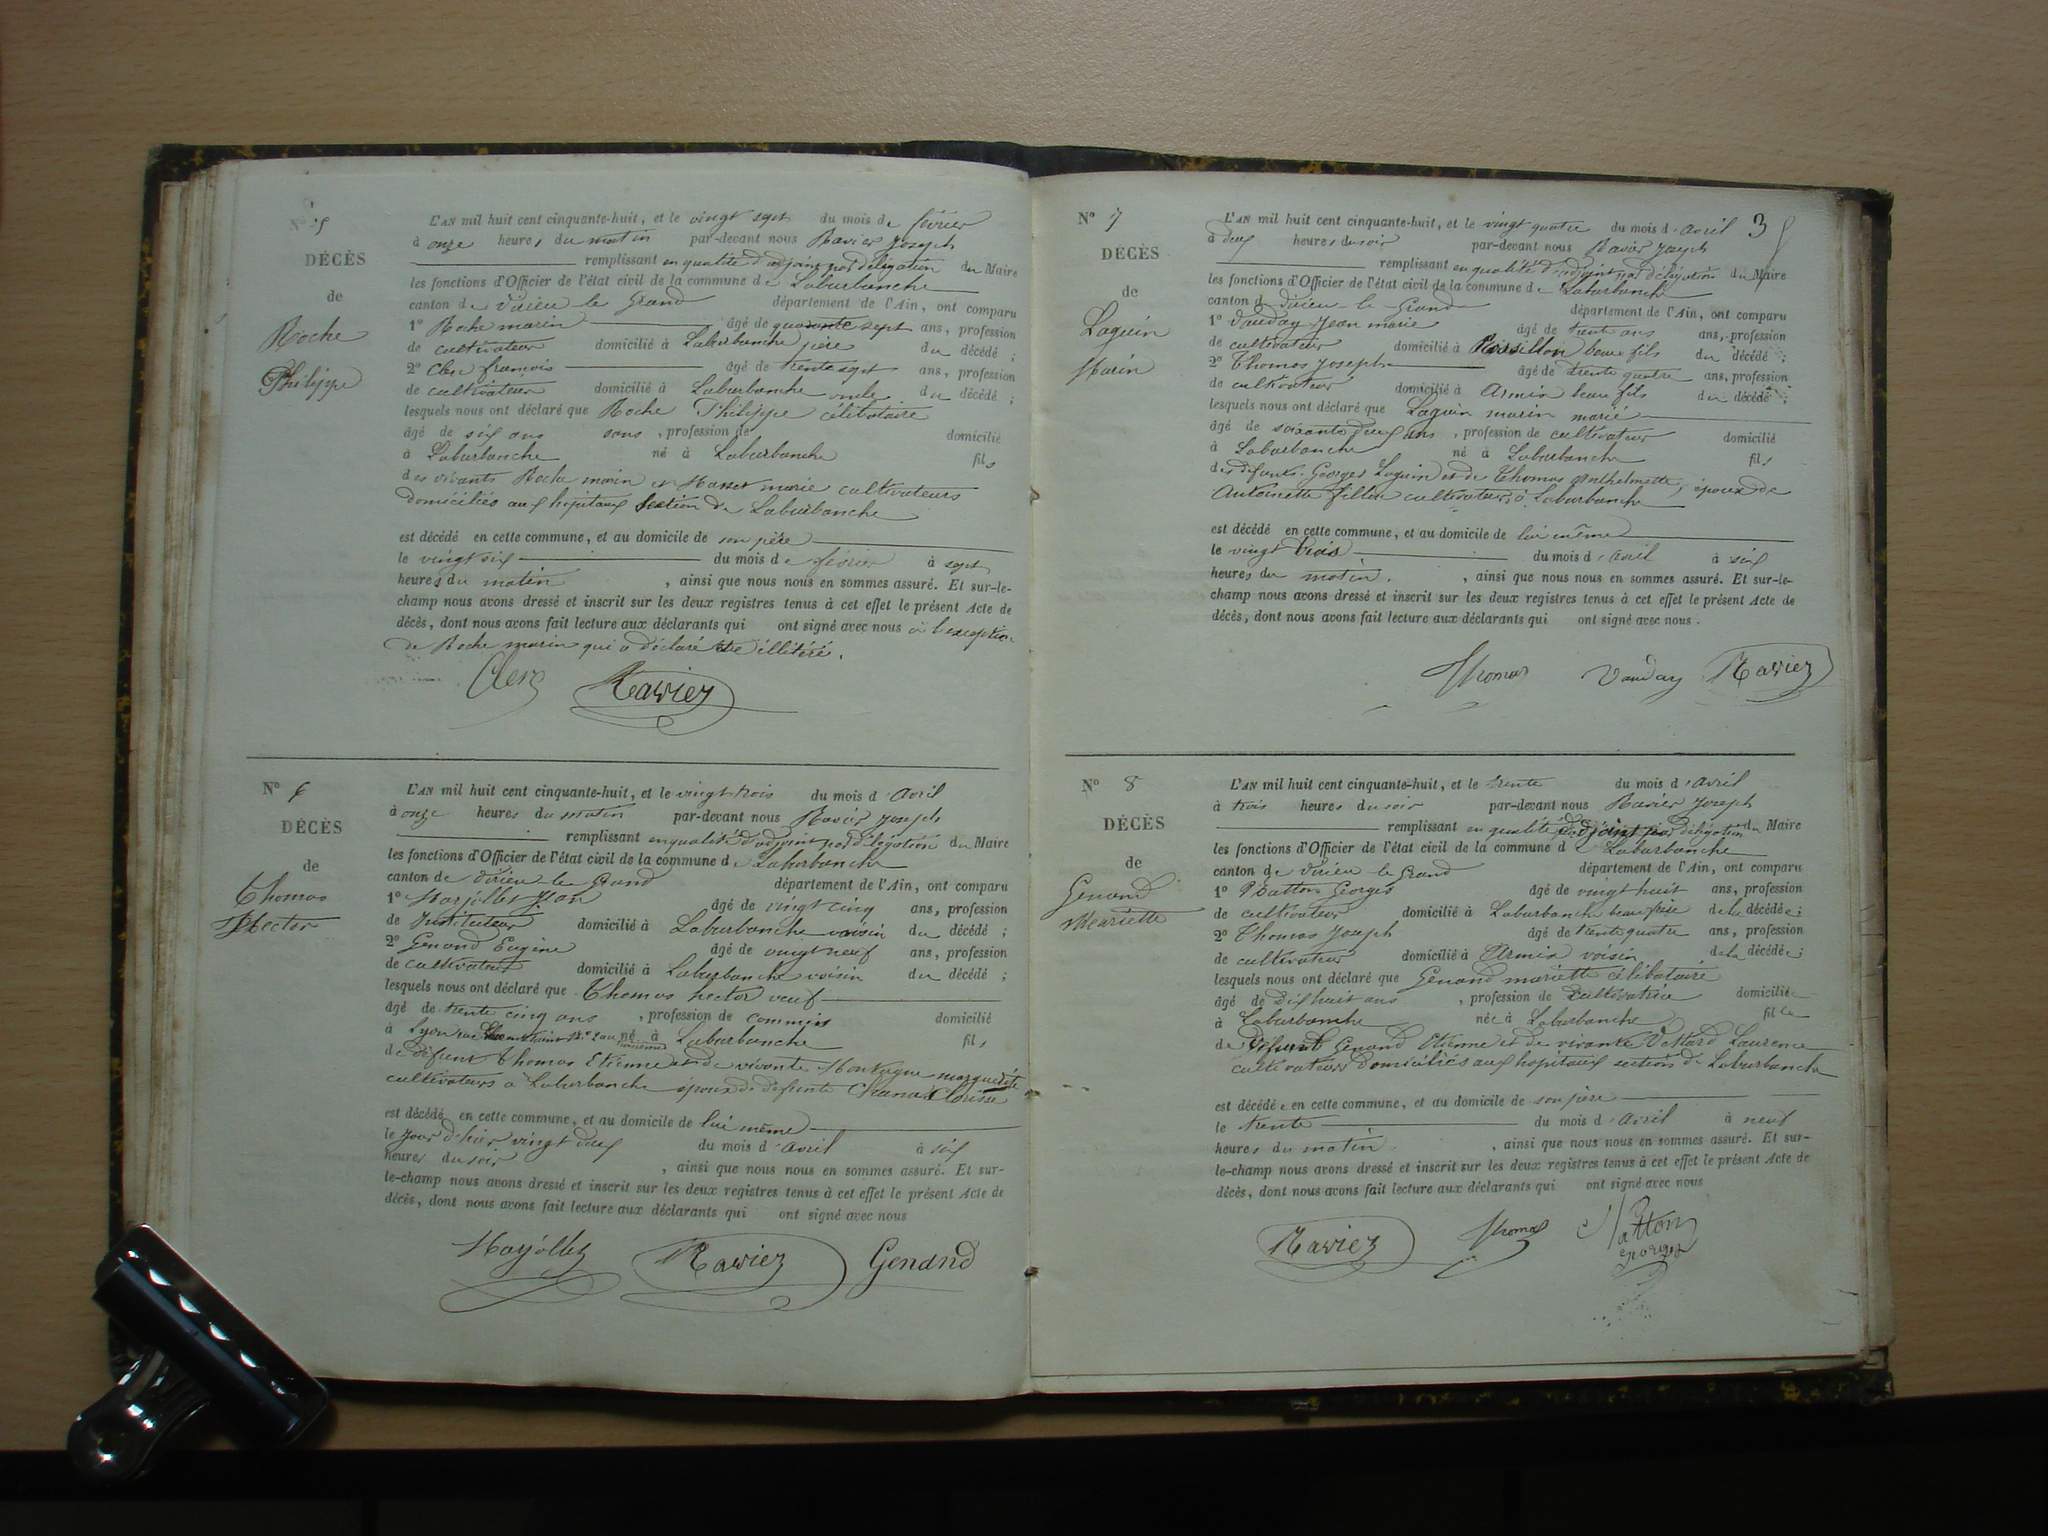 N° 5
DÉCÈS
de
Roche
Philippe
L'AN mil huit cent cinquante-huit, et le vingt sept du mois de février
à onze heures du matin par-devant nous Ravier Joseph
remplissant en qualité d'adjoint par délégation du Maire
les fonctions d'Officier de l'état civil de la commune de Laburbanche
canton de Virieu le Grand département de l'Ain, ont comparu
1° Roche marin âgé de quarante sept ans, profession
de cultivateur domicilié à Laburbanche père du décédé ;
2° Clerc francois âgé de trente sept ans, profession
de cultivateur domicilié à Laburbanche oncle du décédé ;
lesquels nous ont déclaré que Roche Philippe célibataire
âgé de six ans sans , profession de domicilié
à Laburbanche né à Laburbanche fils
des vivants Roche marin et Masset marie cultivateurs
domiciliés aux hopitaux Section de Laburbanche
est décédé en cette commune, et au domicile de son père
le vingt six du mois de février à sept
heures du matin , ainsi que nous nous en sommes assuré. Et sur-le-
champ nous avons dressé et inscrit sur les deux registres tenus à cet effet le présent Acte de
décès, dont nous avons fait lecture aux déclarants qui ont signé avec nous à l'exception
de Roche marin qui a déclaré être illitéré.
Clerc Ravier
N° 6
DÉCÈS
de
Thomas
Hector
L'AN mil huit cent cinquante-huit, et le vingt trois du mois d'avril
à onze heures du matin par-devant nous Ravier Joseph
remplissant en qualité d'adjoint par délégation du Maire
les fonctions d'Officier de l'état civil de la commune de Laburbanche
canton de Virieu le Grand département de l'Ain, ont comparu
1° Jean âgé de vingt cinq ans, profession
de Instituteur domicilié à Laburbanche voisin du décédé ;
2° Genand Eugène âgé de vingt neuf ans, profession
de cultivateur domicilié à Laburbanche voisin du décédé ;
lesquels nous ont déclaré que Thomas hector veuf
âgé de trente cinq ans , profession de commis domicilié
à Lyon rue né à Laburbanche fils
de défunt Thomas Etienne et de vivante Montagne marguerite
cultivateurs à Laburbanche époux de défunte Clorisse
est décédé en cette commune, et au domicile de lui même
le jour d'hier vingt deux du mois d'avril à six
heures du soir , ainsi que nous nous en sommes assuré. Et sur-
le-champ nous avons dressé et inscrit sur les deux registres tenus à cet effet le présent Acte de
décès, dont nous avons fait lecture aux déclarants qui ont signé avec nous
Ravier Genand
3
N° 7
DÉCÈS
de
Laguin
Marin
L'AN mil huit cent cinquante-huit, et le vingt quatre du mois d'avril
à deux heures du soir par-devant nous Ravier Joseph
remplissant en qualité d'adjoint par délégation du Maire
les fonctions d'Officier de l'état civil de la commune de Laburbanche
canton de Virieu le Grand département de l'Ain, ont comparu
1° Vauday Jean marie âgé de trente ans ans, profession
de cultivateur domicilié à Rossillon beau fils du décédé ;
2° Thomas Joseph âgé de trente quatre ans, profession
de cultivateur domicilié à Armix beau fils du décédé ;
lesquels nous ont déclaré que Laguin marin marié
âgé de soixante deux ans , profession de cultivateur domicilié
à Laburbanche né à Laburbanche fils
des défunts Georges Laguin et de Thomas Anthelmette, époux de
Antoinette cultivateurs à Laburbanche
est décédé en cette commune, et au domicile de lui même
le vingt trois du mois d'avril à six
heures du matin , ainsi que nous nous en sommes assuré. Et sur-le-
champ nous avons dressé et inscrit sur les deux registres tenus à cet effet le présent Acte de
décès, dont nous avons fait lecture aux déclarants qui ont signé avec nous.
Thomas Vauday Ravier
N° 8
DÉCÈS
de
Genand
Mariette
L'AN mil huit cent cinquante-huit, et le trente du mois d'avril
à trois heures du soir par-devant nous Ravier Joseph
remplissant en qualité d'adjoint par délégation du Maire
les fonctions d'Officier de l'état civil de la commune de Laburbanche
canton de Virieu le Grand département de l'Ain, ont comparu
1° Georges âgé de vingt huit ans, profession
de cultivateur domicilié à Laburbanche beau frère de la décédée ;
2° Thomas Joseph âgé de trente quatre ans, profession
de cultivateur domicilié à Armix voisin de la décédée ;
lesquels nous ont déclaré que Genand mariette célibataire
âgé de dix huit ans , profession de cultivatrice domiciliée
à Laburbanche née à Laburbanche fille
de défunt Genand Etienne et de vivante Laurence
cultivateurs domiciliés aux hopitaux section de Laburbanche
est décédée en cette commune, et au domicile de son père
le trente du mois d'avril à neuf
heures du matin , ainsi que nous nous en sommes assuré. Et sur-
le-champ nous avons dressé et inscrit sur les deux registres tenus à cet effet le présent Acte de
décès, dont nous avons fait lecture aux déclarants qui ont signé avec nous
Ravier Thomas
Georges